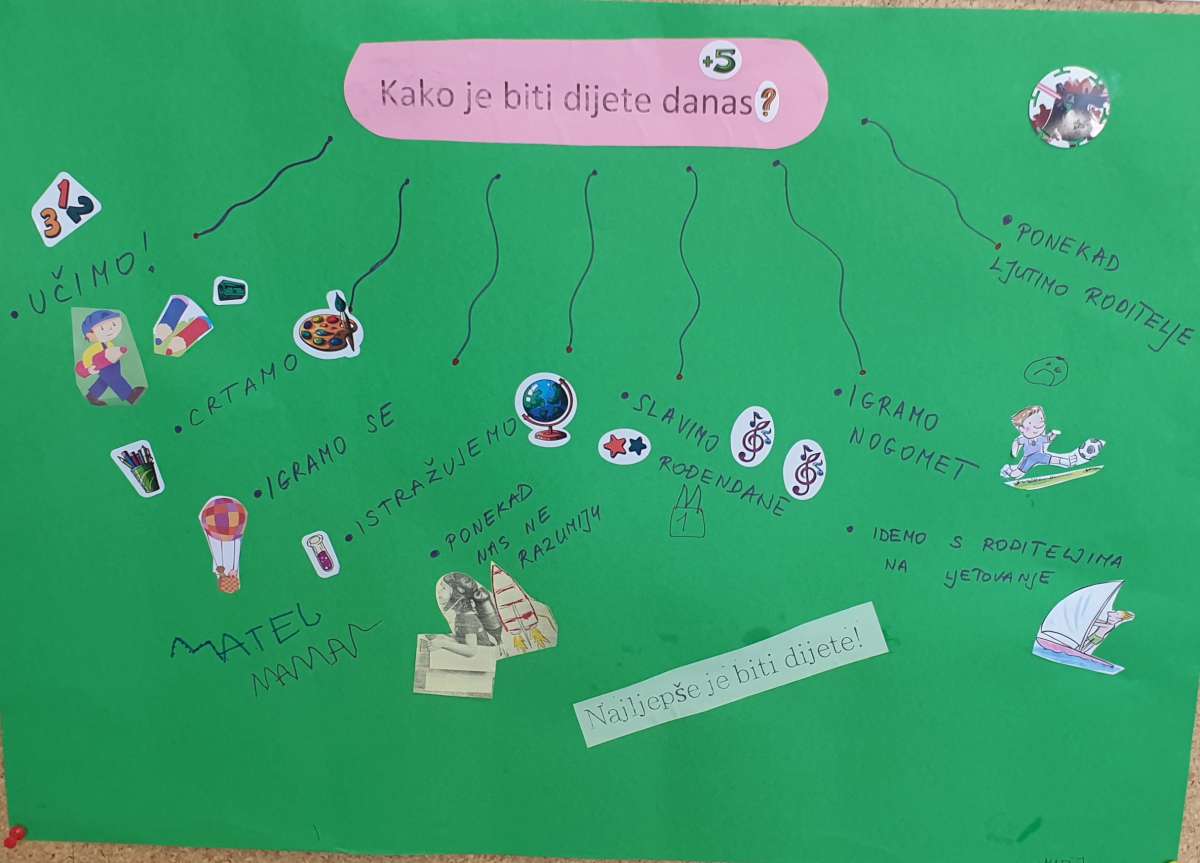 +5
Kako je biti dijete danas?
1 2
3
• UČIMO!
• CRTAMO
• IGRAMO SE
• ISTRAŽUJEMO
• PONEKAD
NAS NE
RAZUMIJU
• SLAVIMO
ROĐENDANE
1
• IGRAMO
NOGOMET
• PONEKAD
LJUTIMO RODITELJE
• IDEMO S RODITELJIMA
NA LJETOVANJE
MATEL
Najljepše je biti dijete!